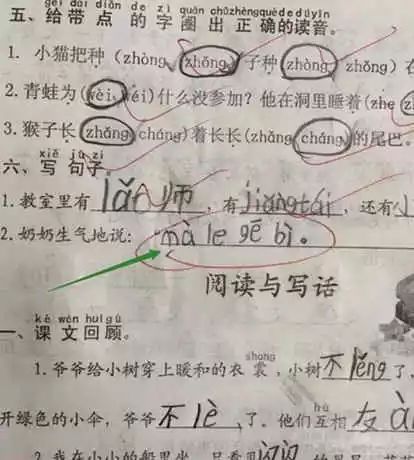 gěi dài diǎn de zì quān chū zhèng què de dú yīn
五、给带点的字圈出正确的读音。
1. 小猫把种（zhòng zhǒng）子种（zhòng zhǒng）在
2. 青蛙为（wèi wéi）什么没参加？他在洞里睡着（zhe
3. 猴子长（zhǎng cháng）着长长（zhǎng cháng）的尾巴。
xiě jù zi
六、写句子。
1. 教室里有lǎo师，有jiǎngtái，还有小
2. 奶奶生气地说：“mà le gē bì。
阅读与写话
kè wén huí gù
一、课文回顾。
shang
1. 爷爷给小树穿上暖和的衣裳，小树不lěng了，
hù
开绿色的小伞，爷爷不lè了。他们互相友ài
2. 我在小小的船里坐，只看见闪闪的星星